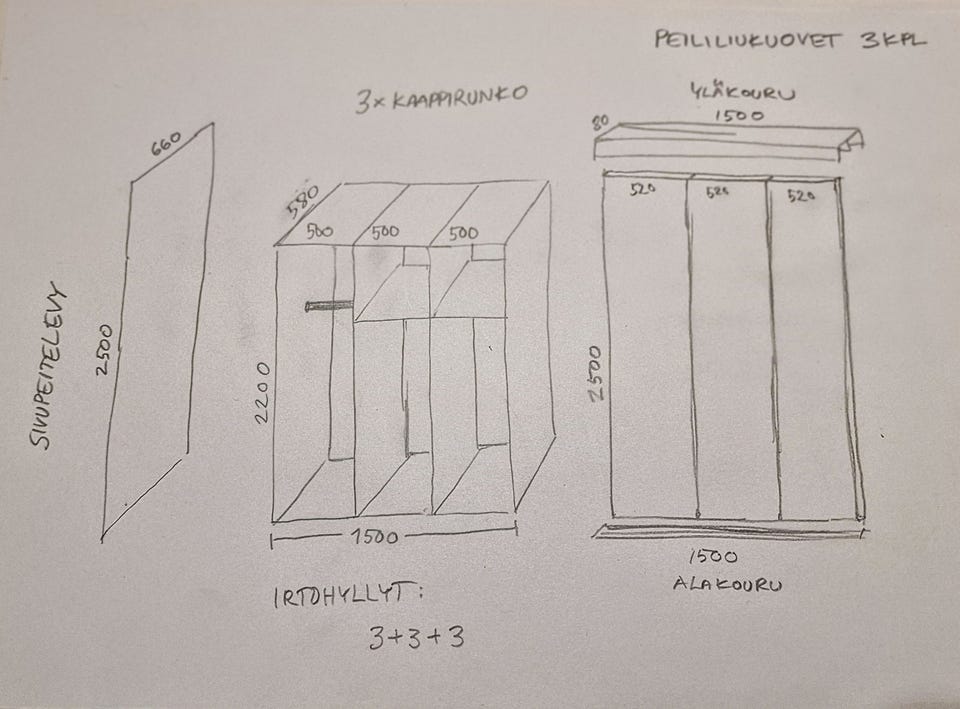 PEILILIUKUOVET 3KPL
3x KAAPPIRUNKO
YLÄKOURU
1500
80
660
580
500 500 500
520 520 520
SIVUPEITELEVY
2500
2200
2500
1500
1500
ALAKOURU
IRTOHYLLYT:
3+3+3